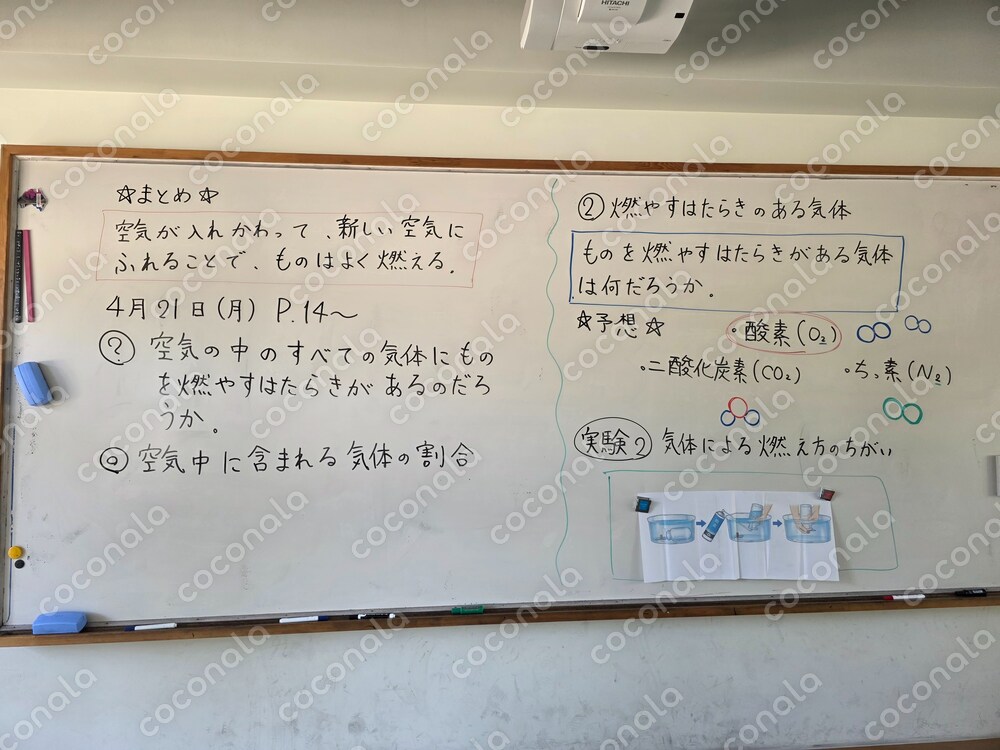 HITACHI
☆まとめ☆
空気が入れかわって、新しい空気に
ふれることで、ものはよく燃える。
4月21日(月) P.14〜
? 空気の中のすべての気体にもの
を燃やすはたらきがあるのだろ
うか。
◎ 空気中に含まれる気体の割合
② 燃やすはたらきのある気体
ものを燃やすはたらきがある気体
は何だろうか。
☆予想☆
・酸素(O₂)
・二酸化炭素(CO₂) ・ちっ素(N₂)
実験2 気体による燃え方のちがい
coconala